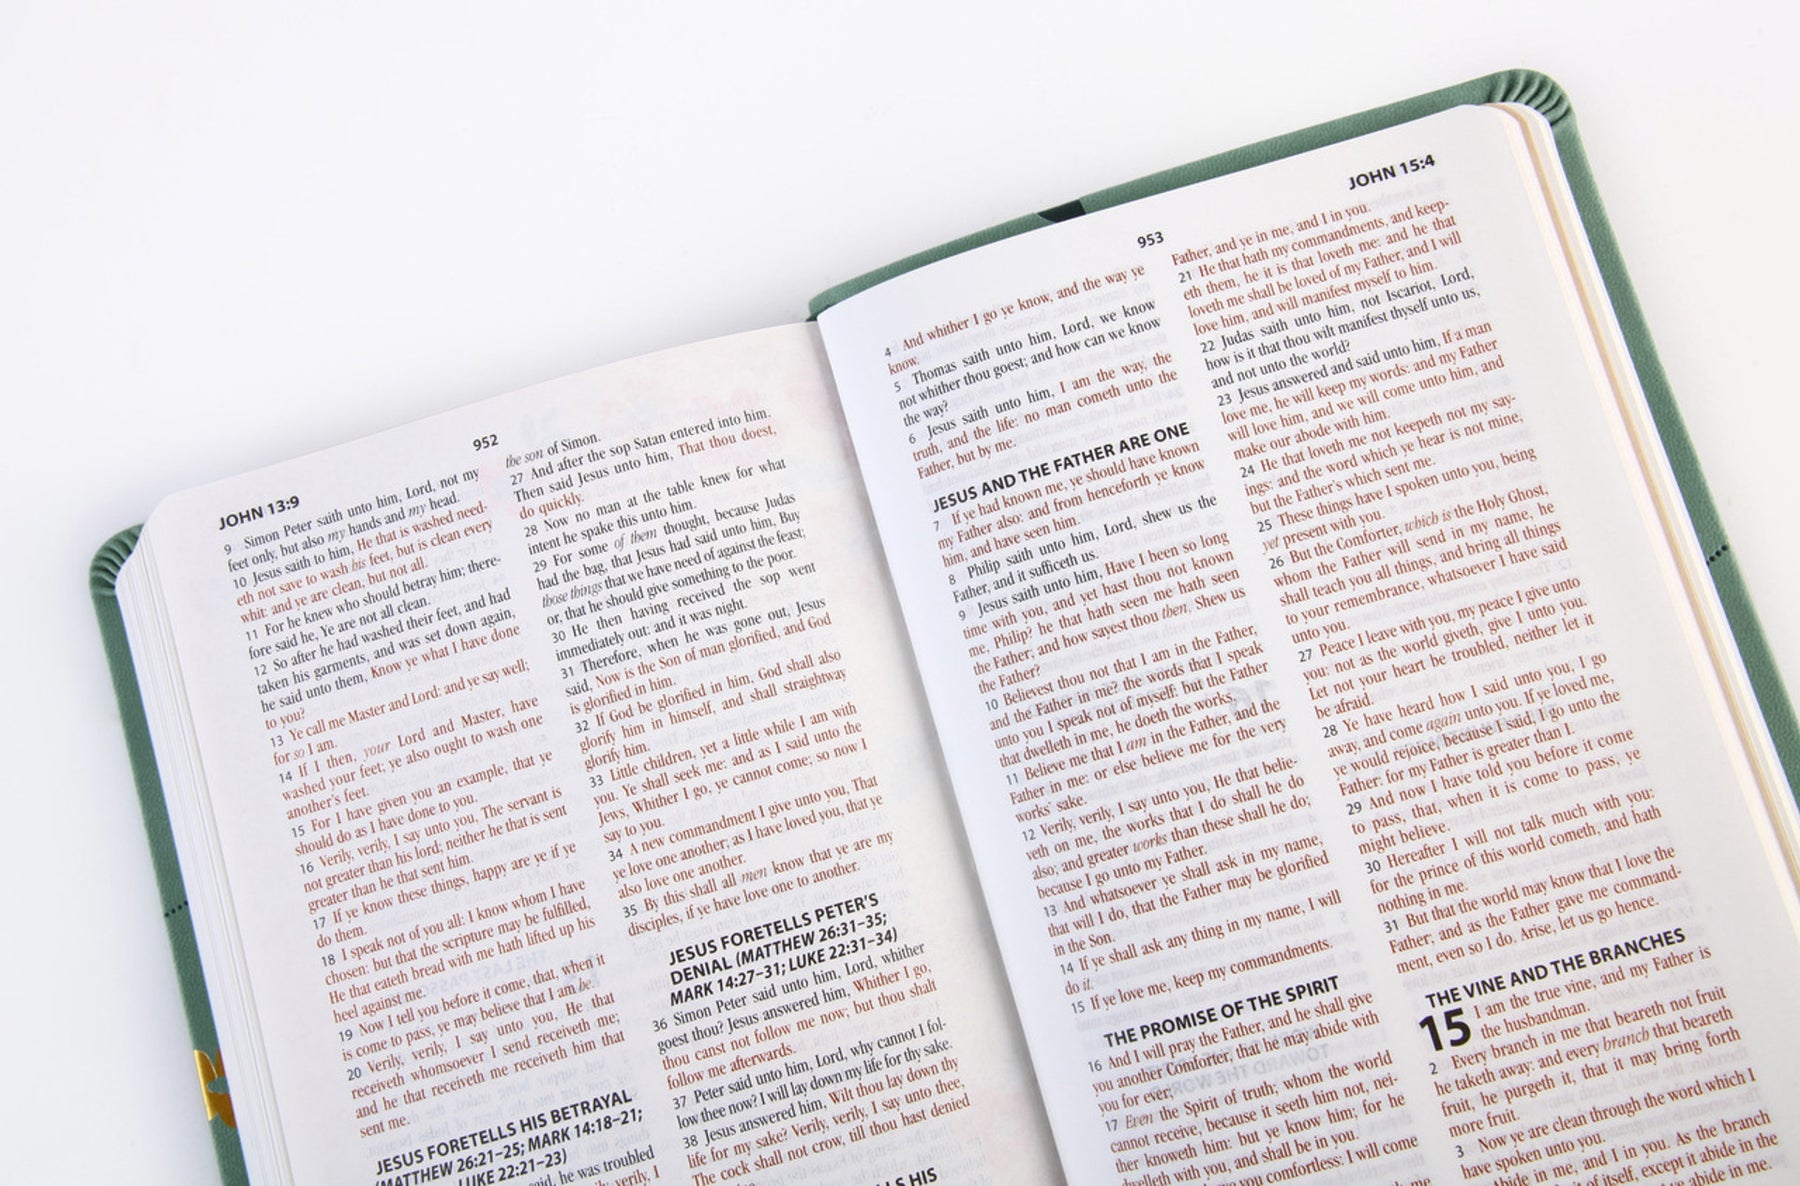 JOHN 13:9
952
9 Simon Peter saith unto him, Lord, not my
feet only, but also my hands and my head.
10 Jesus saith to him, He that is washed need-
eth not save to wash his feet, but is clean every
whit: and ye are clean, but not all.
11 For he knew who should betray him; there-
fore said he, Ye are not all clean.
12 So after he had washed their feet, and had
taken his garments, and was set down again,
he said unto them, Know ye what I have done
to you?
13 Ye call me Master and Lord: and ye say well;
for so I am.
14 If I then, your Lord and Master, have
washed your feet; ye also ought to wash one
another's feet.
15 For I have given you an example, that ye
should do as I have done to you.
16 Verily, verily, I say unto you, The servant is
not greater than his lord; neither he that is sent
greater than he that sent him.
17 If ye know these things, happy are ye if ye
do them.
18 I speak not of you all: I know whom I have
chosen: but that the scripture may be fulfilled,
He that eateth bread with me hath lifted up his
heel against me.
19 Now I tell you before it come, that, when it
is come to pass, ye may believe that I am he.
20 Verily, verily, I say unto you, He that
receiveth whomsoever I send receiveth me;
and he that receiveth me receiveth him that
sent me.
JESUS FORETELLS HIS BETRAYAL
(MATTHEW 26:21–25; MARK 14:18–21;
LUKE 22:21–23)
said, he was troubled
verily, I
the son of Simon.
27 And after the sop Satan entered into him.
Then said Jesus unto him, That thou doest,
do quickly.
28 Now no man at the table knew for what
intent he spake this unto him.
29 For some of them thought, because Judas
had the bag, that Jesus had said unto him, Buy
those things that we have need of against the feast;
or, that he should give something to the poor.
30 He then having received the sop went
immediately out: and it was night.
31 Therefore, when he was gone out, Jesus
said, Now is the Son of man glorified, and God
is glorified in him.
32 If God be glorified in him, God shall also
glorify him in himself, and shall straightway
glorify him.
33 Little children, yet a little while I am with
you. Ye shall seek me: and as I said unto the
Jews, Whither I go, ye cannot come; so now I
say to you.
34 A new commandment I give unto you, That
ye love one another; as I have loved you, that ye
also love one another.
35 By this shall all men know that ye are my
disciples, if ye have love one to another.
JESUS FORETELLS PETER'S
DENIAL (MATTHEW 26:31–35;
MARK 14:27–31; LUKE 22:31–34)
36 Simon Peter said unto him, Lord, whither
goest thou? Jesus answered him, Whither I go,
thou canst not follow me now; but thou shalt
follow me afterwards.
37 Peter said unto him, Lord, why cannot I fol-
low thee now? I will lay down my life for thy sake.
38 Jesus answered him, Wilt thou lay down thy
life for my sake? Verily, verily, I say unto thee,
The cock shall not crow, till thou hast denied
HIS
953
JOHN 15:4
4 And whither I go ye know, and the way ye
know.
5 Thomas saith unto him, Lord, we know
not whither thou goest; and how can we know
the way?
6 Jesus saith unto him, I am the way, the
truth, and the life: no man cometh unto the
Father, but by me.
JESUS AND THE FATHER ARE ONE
7 If ye had known me, ye should have known
my Father also: and from henceforth ye know
him, and have seen him.
8 Philip saith unto him, Lord, shew us the
Father, and it sufficeth us.
9 Jesus saith unto him, Have I been so long
time with you, and yet hast thou not known
me, Philip? he that hath seen me hath seen
the Father; and how sayest thou then, Shew us
the Father?
10 Believest thou not that I am in the Father,
and the Father in me? the words that I speak
unto you I speak not of myself: but the Father
that dwelleth in me, he doeth the works.
11 Believe me that I am in the Father, and the
Father in me: or else believe me for the very
works' sake.
12 Verily, verily, I say unto you, He that belie-
veth on me, the works that I do shall he do
also; and greater works than these shall he do;
because I go unto my Father.
13 And whatsoever ye shall ask in my name,
that will I do, that the Father may be glorified
in the Son.
14 If ye shall ask any thing in my name, I will
do it.
15 If ye love me, keep my commandments.
THE PROMISE OF THE SPIRIT
16 And I will pray the Father, and he shall give
you another Comforter, that he may abide with
you for ever;
17 Even the Spirit of truth; whom the world
cannot receive, because it seeth him not, nei-
ther knoweth him: but ye know him; for he
dwelleth with you, and shall be in you.
you comfortless: I will come
Father, and ye in me, and I in you.
21 He that hath my commandments, and keep-
eth them, he it is that loveth me: and he that
loveth me shall be loved of my Father, and I will
love him, and will manifest myself to him.
22 Judas saith unto him, not Iscariot, Lord,
how is it that thou wilt manifest thyself unto us,
and not unto the world?
23 Jesus answered and said unto him, If a man
love me, he will keep my words: and my Father
will love him, and we will come unto him, and
make our abode with him.
24 He that loveth me not keepeth not my say-
ings: and the word which ye hear is not mine,
but the Father's which sent me.
25 These things have I spoken unto you, being
yet present with you.
26 But the Comforter, which is the Holy Ghost,
whom the Father will send in my name, he
shall teach you all things, and bring all things
to your remembrance, whatsoever I have said
unto you.
27 Peace I leave with you, my peace I give unto
you: not as the world giveth, give I unto you.
Let not your heart be troubled, neither let it
be afraid.
28 Ye have heard how I said unto you, I go
away, and come again unto you. If ye loved me,
ye would rejoice, because I said, I go unto the
Father: for my Father is greater than I.
29 And now I have told you before it come
to pass, that, when it is come to pass, ye
might believe.
30 Hereafter I will not talk much with you:
for the prince of this world cometh, and hath
nothing in me.
31 But that the world may know that I love the
Father; and as the Father gave me command-
ment, even so I do. Arise, let us go hence.
THE VINE AND THE BRANCHES
15 I am the true vine, and my Father is
the husbandman.
2 Every branch in me that beareth not fruit
he taketh away: and every branch that beareth
fruit, he purgeth it, that it may bring forth
more fruit.
3 Now ye are clean through the word which I
have spoken unto you.
Abide in me, and I in you. As the branch
of itself, except it abide in the
abide in me.